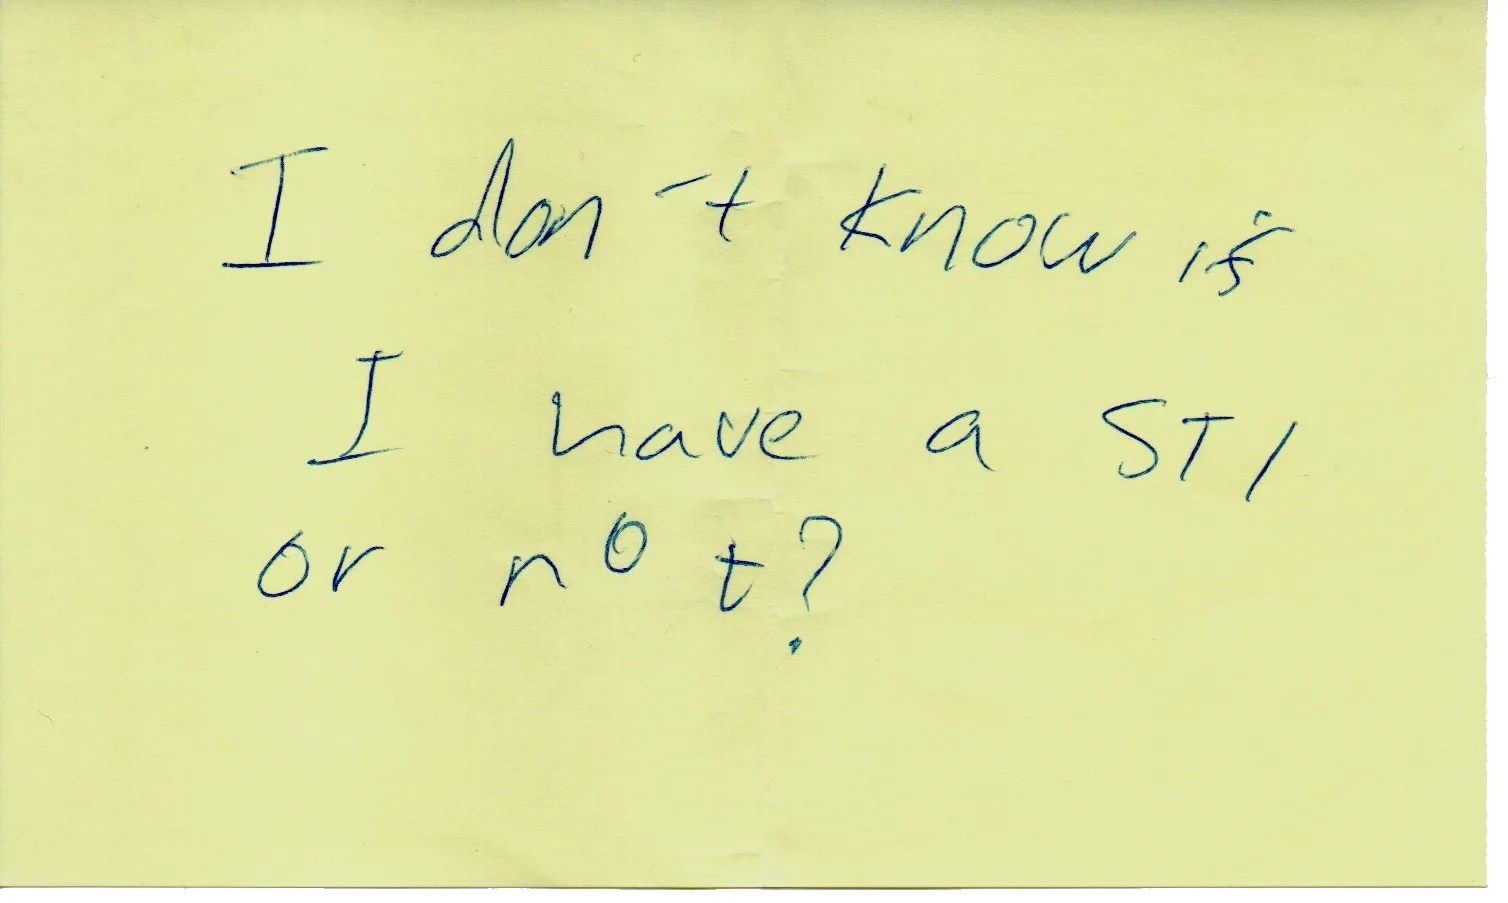 I don't know if
I have a STI
or not?